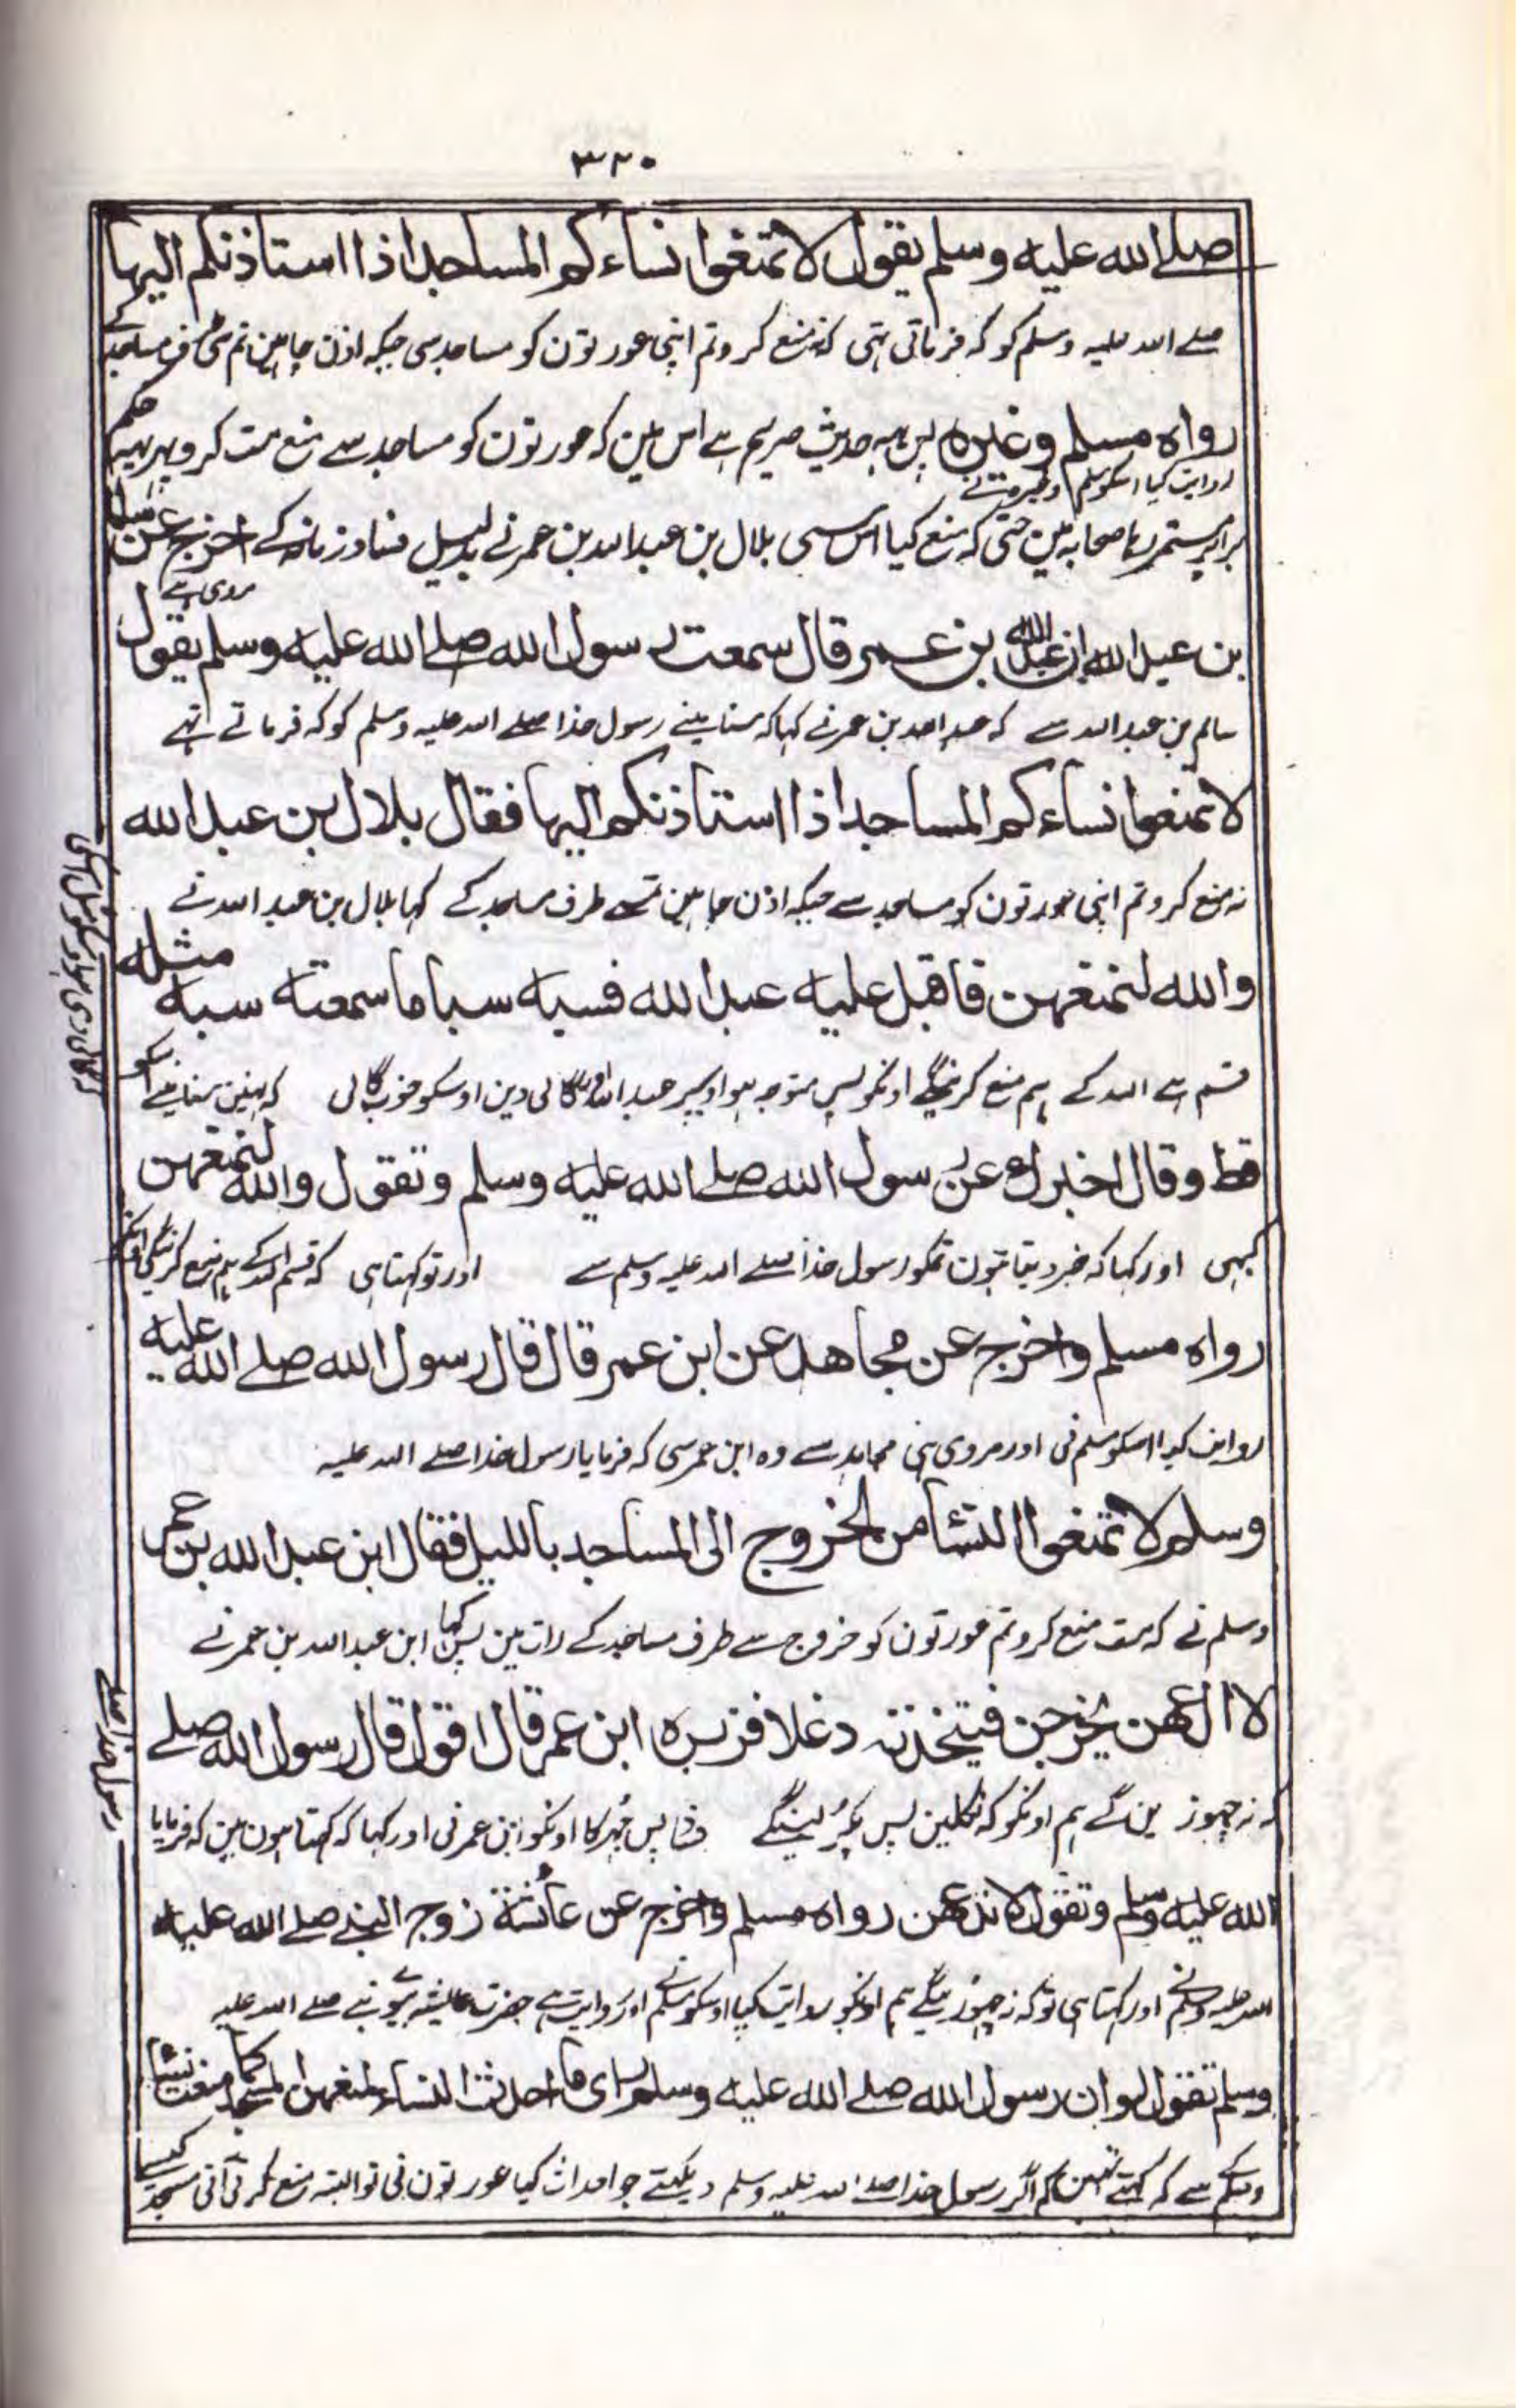 ٣٢٠
صلے الله علیه وسلم یقول لا تمنعوا نساءکم المساجد اذا استاذنکم الیہا
صلے اللہ علیہ وسلم کو کہ فرماتی تہی کہ نہ منع کرو تم اپنی عورتون کو مساجد سی جبکہ اذن چاہین تم سی طرف مساجد کے
رواہ مسلم وغیرہ پس یہہ حدیث صریح ہے اس مین کہ عورتون کو مساجد سے منع مت کرو پہر یہہ حکم
روایت کیا اسکو مسلم وغیرہ نے
برابر مستمر رہا صحابہ مین حتی کہ منع کیا اس سی بلال بن عبداللہ بن عمر نے بدلیل فساد زمانہ کے اخرج عن سالم
مروی ہے
بن عبد الله ان عبد الله بن عمر قال سمعت رسول الله صلے الله علیه وسلم یقول
سالم بن عبداللہ سے کہ عبداللہ بن عمر نے کہا کہ سنا مینے رسول خدا صلے اللہ علیہ وسلم کو کہ فرماتے تہے
لا تمنعوا نساءکم المساجد اذا استاذنکم الیہا فقال بلال بن عبد الله
نہ منع کرو تم اپنی عورتون کو مساجد سے جبکہ اذن چاہین تمسے طرف مساجد کے کہا بلال بن عبد اللہ نے
والله لنمنعهن فاقبل علیه عبد الله فسبه سبا ما سمعته سبه مثله
قسم ہے اللہ کے ہم منع کرینگے اونکو پس متوجہ ہوا اوپر عبداللہ اور گالی دین اوسکو خوب گالی کہ نہین سنا مینے اسکو
قط وقال اخبرك عن رسول الله صلے الله علیه وسلم وتقول والله لنمنعهن
کبہی اور کہا کہ خبر دیتا ہون تمکو رسول خدا صلے اللہ علیہ وسلم سے اور تو کہتا ہی کہ قسم اللہ کے ہم منع کرینگی اونکو
رواه مسلم واخرج عن مجاهد عن ابن عمر قال قال رسول الله صلے الله علیه
روایت کیا اسکو مسلم نی اور مروی ہی مجاہد سے وہ ابن عمر سی کہ فرمایا رسول خدا صلے اللہ علیہ
وسلم لا تمنعوا النساء من الخروج الی المساجد باللیل فقال ابن عبد الله بن عمر
وسلم نے کہ مت منع کرو تم عورتون کو خروج سے طرف مساجد کے رات مین پس کہا ابن عبداللہ بن عمر نے
لا ندعهن یخرجن فیتخذنه دغلا فزبره ابن عمر قال اقول قال رسول الله صلے
کہ نہ چہوڑ ین گے ہم اونکو کہ نکلین پس پکڑ لینگے فسا پس جہڑکا اونکو ابن عمر نی اور کہا کہ کہتا ہون مین کہ فرمایا
رسول خدا صلے
الله علیه وسلم وتقول لا ندعهن رواه مسلم واخرج عن عائشة زوج النبی صلے الله علیه
اللہ علیہ وسلم نے اور کہتا ہی تو کہ نہ چہوڑینگے ہم اونکو روایت کیا اوسکو مسلم نے اور روایت ہے حضرت عایشہ بیوی نبے صلے اللہ علیہ
وسلم تقول لو ان رسول الله صلے الله علیه وسلم رای ما احدث النساء لمنعهن المسجد کما منعت نساء
وسلم سے کہ کہتے تہین کہ اگر رسول خدا صلے اللہ علیہ وسلم دیکہتے جو احداث کیا عورتون نی تو البتہ منع کرتی آنی مسجد کیسے